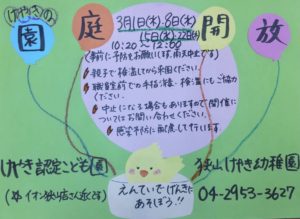 けやきの
園庭開放
3月1日(木)・8日(木)
15日(木)・22日(木)
10:20〜12:00
(事前に予防をお願いします、雨天中止です)
・親子で検温してから来園ください。
・職員室前での手指消毒・検温にもご協力
ください。
・中止になる場合もありますので開催に
ついてはお問い合わせください。
・感染予防に配慮して行います。
けやき認定こども園
(☆イオン狭山店さん近くです)
えんていでげんきに
あそぼう!!
狭山けやき幼稚園
04-2953-3627